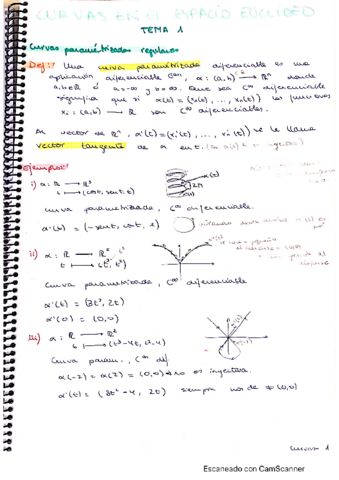 CURVAS EN EL ESPACIO EUCLÍDEO
TEMA 1
Curvas paramétrizadas regulares
Def.: Una curva parametrizada diferenciable es una
aplicación diferenciable C∞, α: (a,b) → ℝⁿ donde
a,b∈ℝ ó a=-∞ y b=∞. Que sea C∞ diferenciable
significa que si α(t) = (x₁(t), ..., xₙ(t)) las funciones
xᵢ: (a,b) → ℝ son C∞ diferenciables.
Al vector de ℝⁿ, α'(t) = (x₁'(t), ..., xₙ'(t)) se le llama
vector tangente de α en t.
Ejemplos:
i) α: ℝ → ℝ³
t → (cost, sent, t)
2π
Curva parametrizada, C∞ diferenciable
α'(t) = (-sent, cost, 1)
ii) α: ℝ → ℝ²
t → (t³, t²)
Curva parametrizada, C∞ diferenciable
α'(t) = (3t², 2t)
α'(0) = (0,0)
iii) α: ℝ → ℝ²
t → (t³-4t, t²-4)
Curva param., C∞ dif.
α(-2) = α(2) = (0,0) no es inyectiva
α'(t) = (3t²-4, 2t) siempre ≠ (0,0)
Curvas 1
Escaneado con CamScanner